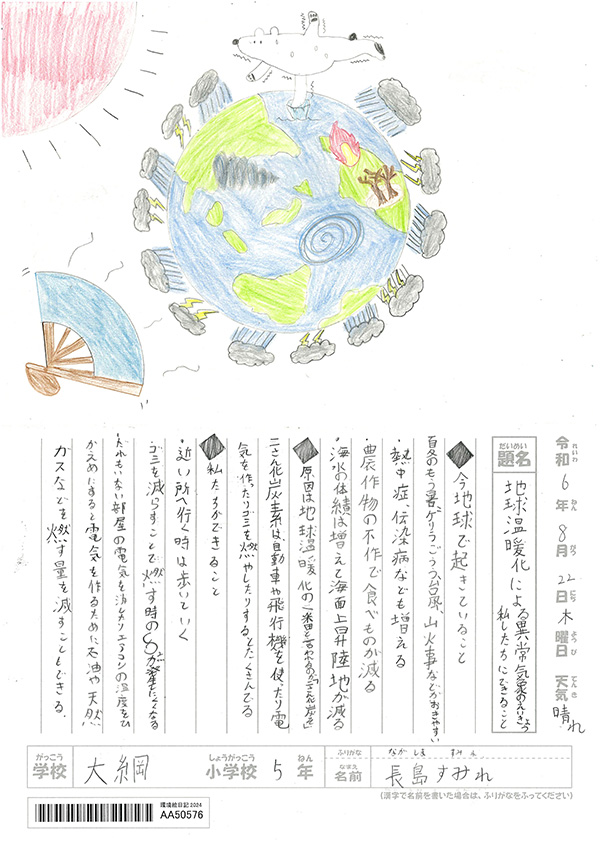 令和6年8月22日木曜日 天気 晴れ
れいわ ねん がつ にち ようび てんき
だいめい
題名
地球温暖化による異常気象のえいきょう
私たちにできること
◆今地球で起きていること
台風、山火事などがおきやすい
・熱中症、伝染病なども増える
・農作物の不作で食べものが減る
・海水の体積は増えて海面上昇陸地が減る
◆原因は地球温暖化の一番と言われるのが「二さん化炭素」
二さん化炭素は、自動車や飛行機を使ったり電
気を作ったりゴミを燃やしたりするとたくさんでる
◆私たちができること
・近い所へ行く時は歩いていく
・ゴミを減らすことで燃す時のCO2が発生しなくなる
・だれもいない部屋の電気を消したりエアコンの温度をひ
かえめにすると電気を作るために石油や天然
ガスなどを燃す量を減すこともできる.
がっこう しょうがっこう ねん
学校 大綱 小学校 5年
ふりがな ながしま すみれ
なまえ
名前 長島すみれ
(漢字で名前を書いた場合は、ふりがなをふってください)
環境絵日記2024
AA50576